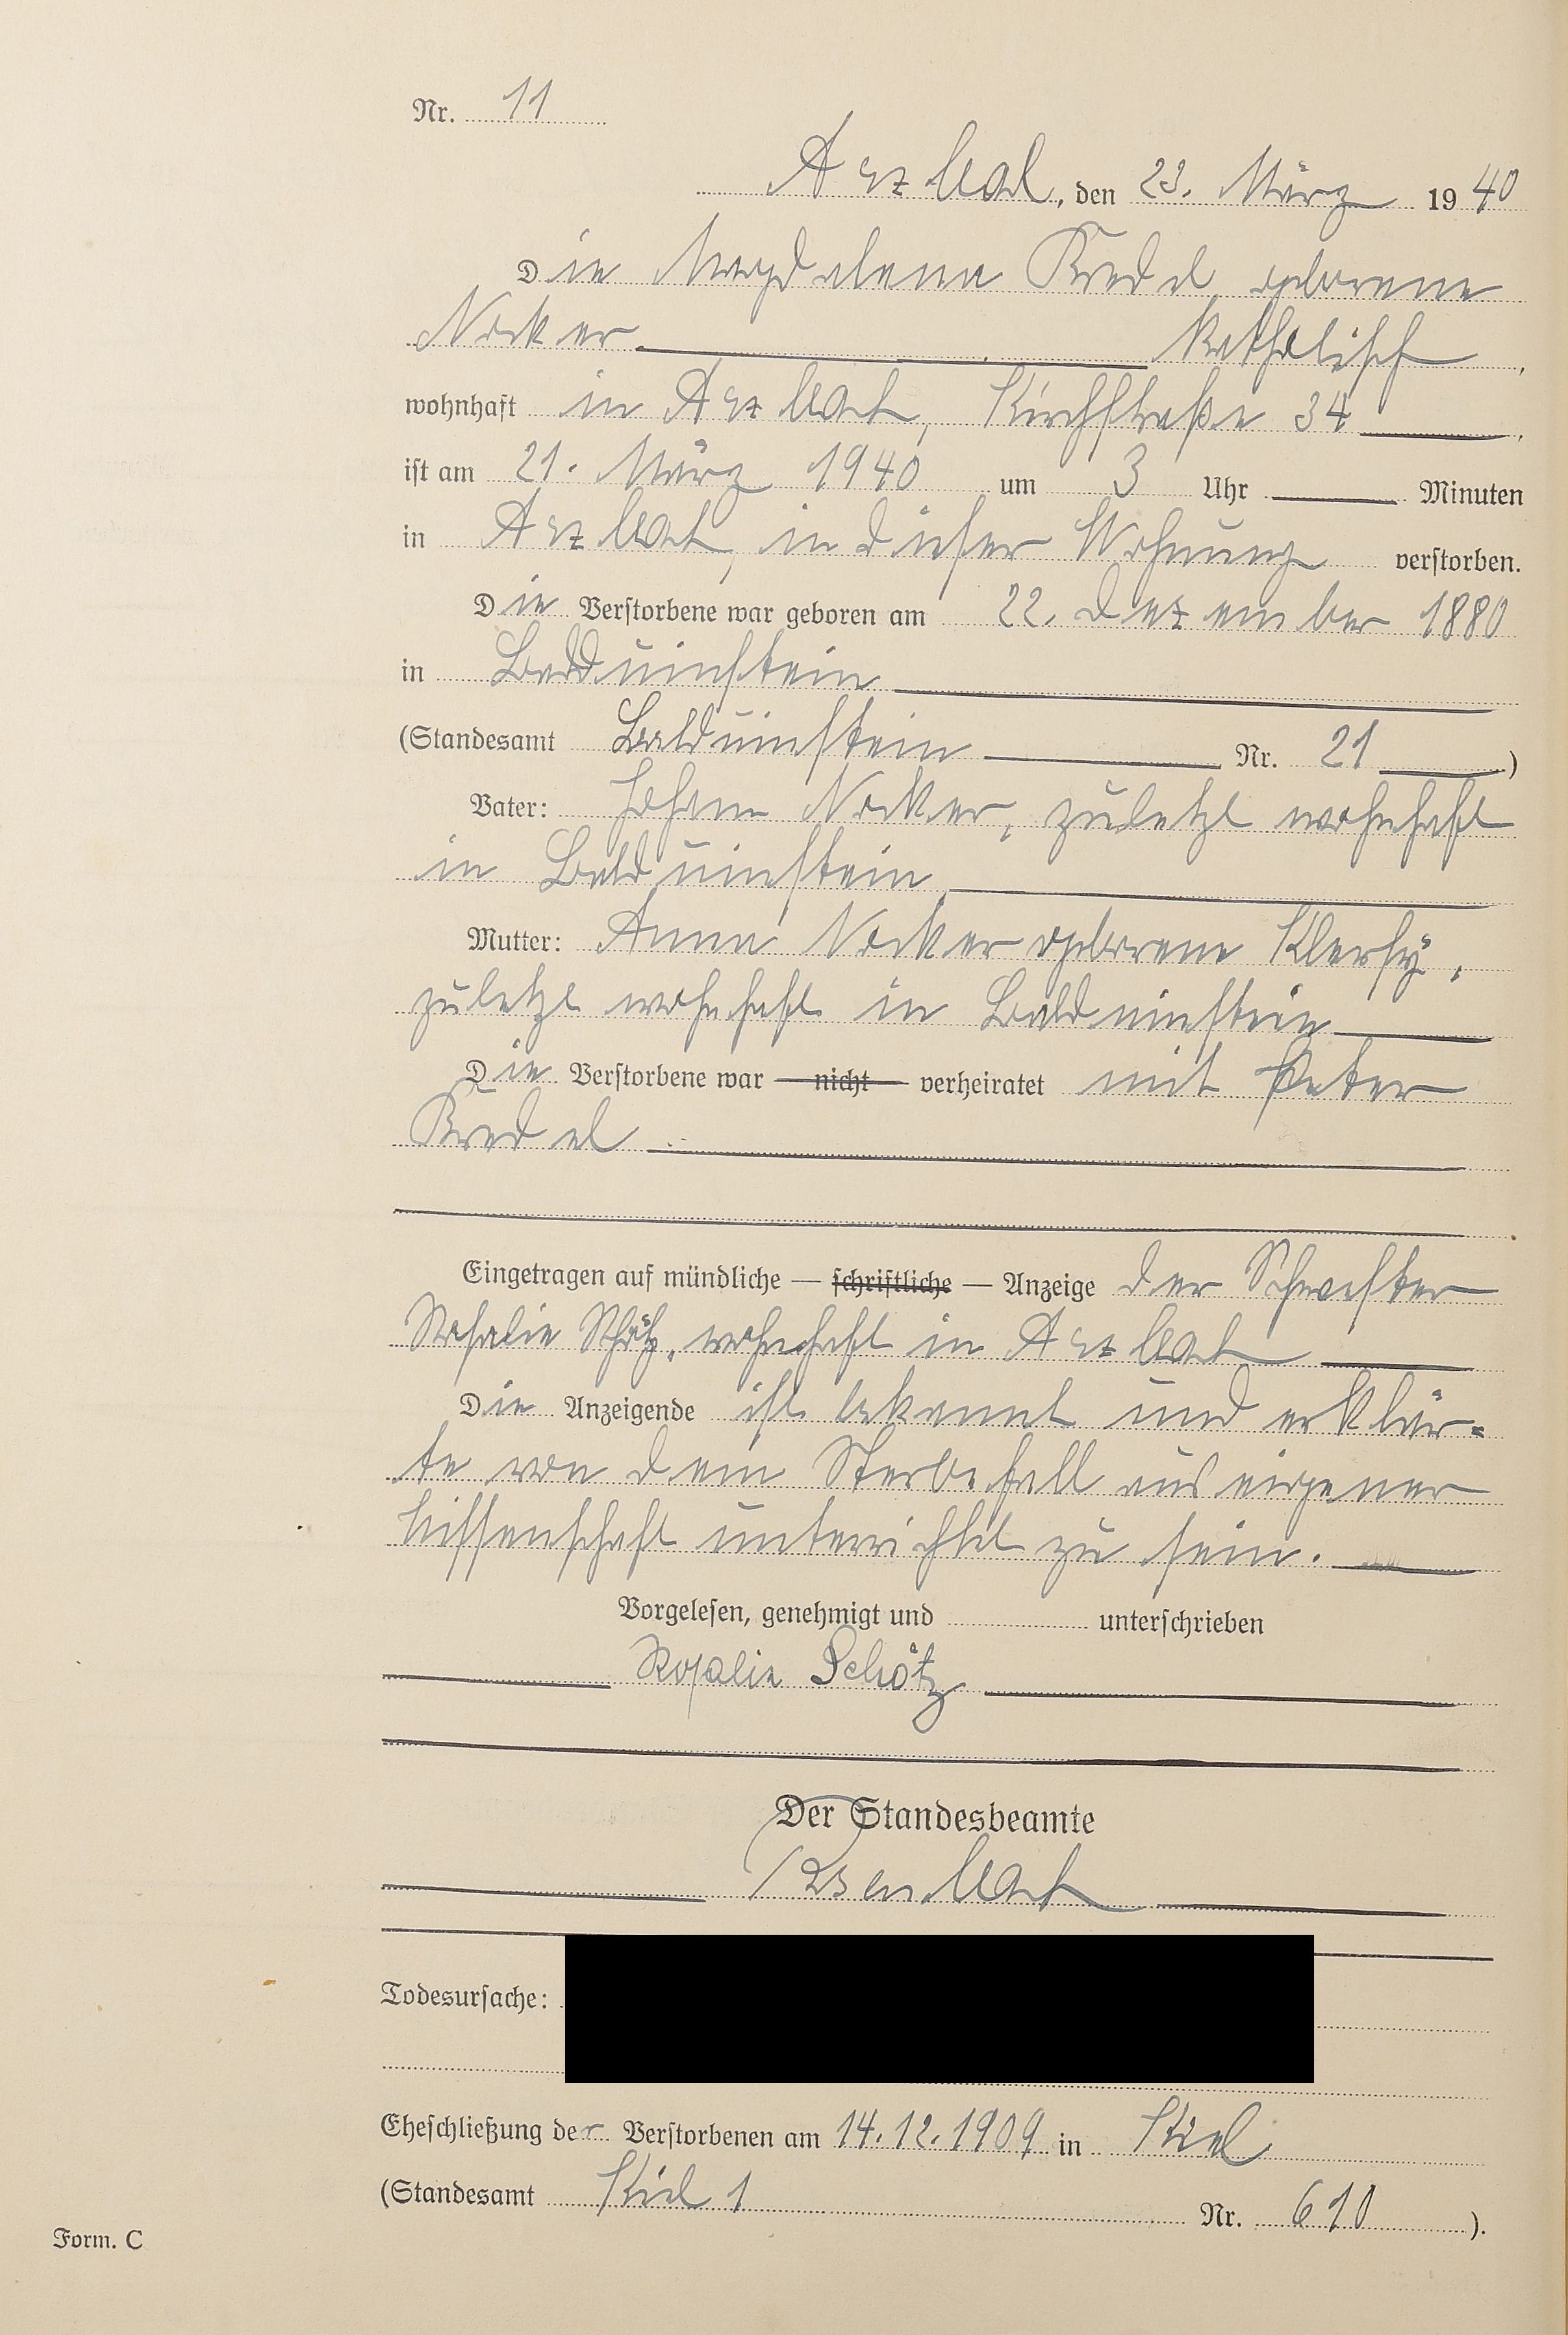 Nr. 11
Arzbach, den 23. März 1940
Die Magdalena Kredel geborene
Nocker katholisch,
wohnhaft in Arzbach, Kirchstraße 34,
ist am 21. März 1940 um 3 Uhr Minuten
in Arzbach, in dieser Wohnung verstorben.
Die Verstorbene war geboren am 22. Dezember 1880
in Balduinstein
(Standesamt Balduinstein Nr. 21)
Vater: Johann Nocker, zuletzt wohnhaft
in Balduinstein
Mutter: Anna Nocker geborene Klersÿ,
zuletzt wohnhaft in Balduinstein
Die Verstorbene war nicht verheiratet mit Peter
Kredel
Eingetragen auf mündliche — schriftliche — Anzeige der Schwester
Rosalie Schötz, wohnhaft in Arzbach
Die Anzeigende ist bekannt und erklär-
te von dem Sterbefall aus eigener
Wissenschaft unterrichtet zu sein.
Vorgelesen, genehmigt und unterschrieben
Rosalie Schötz
Der Standesbeamte
Todesursache:
Eheschließung der Verstorbenen am 14.12.1909 in Kiel
(Standesamt Kiel 1 Nr. 610).
Form. C